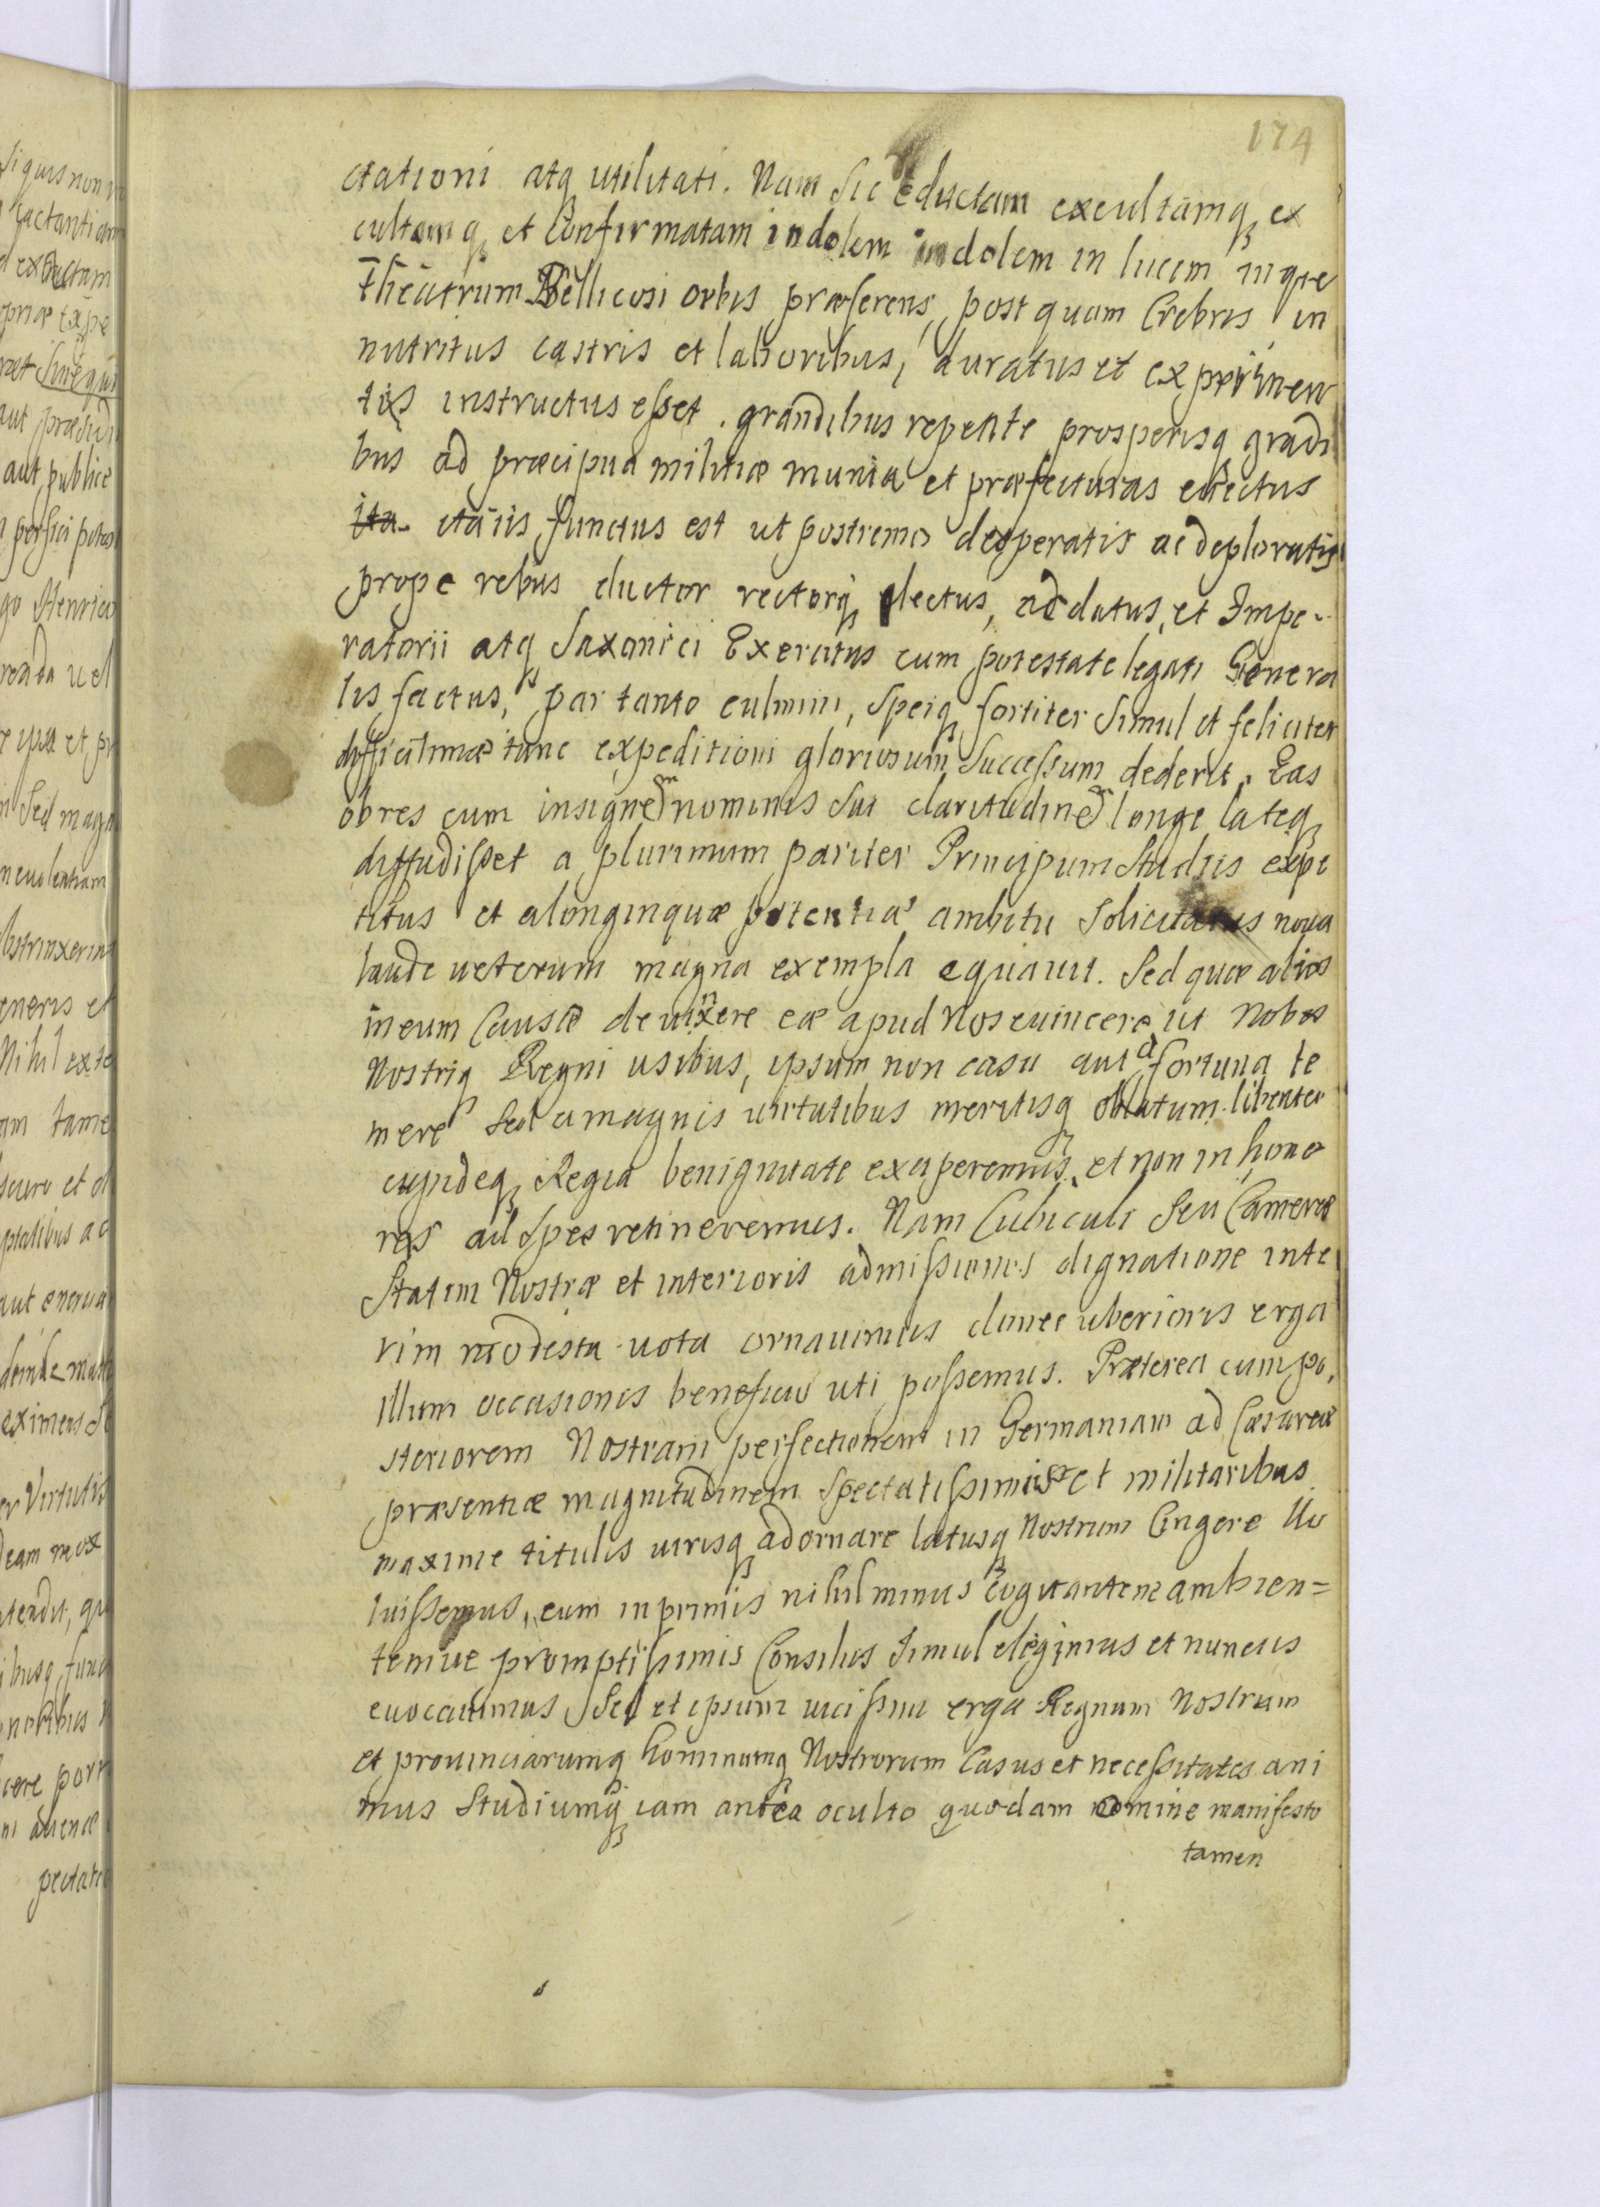 174
ctationi atq utilitati. Nam sic eductam excultamq ex
cultamq et confirmatam indolem indolem in lucem inque
Theatrum Bellicosi orbis præferens, post quam Crebris in
nutritus castris et laboribus, duratus et experimen
tis instructus esset. grandibus repente prosperisq gradi
bus ad præcipua militiæ munia et præfecturas evectus
ita itaiis functus est ut postremo desperatis ac deploratis
prope rebus ductor rectorq electus, ac datus, et Impe-
ratorii atq Saxonici Exercitus cum potestate legati Genera
lis factus, par tanto culmini, speiq fortiter simul et feliciter
difficilimæ tunc expeditioni gloriosum successum dederit. Eas
obres cum insignem nominis sui claritudinem longe lateq
diffudisset a plurimum pariter Principum studiis expe
titus et alonginquæ potentiæ ambitu solicitatus noua
laude ueterum magna exempla equauit. Sed quæ alios
ineum Causæ deuinxere eæ apud Nos euincere ut Nobis
Nostriq Regni usibus, ipsum non casu aut a fortuna te
mere sed a magnis uirtutibus meritisq oblatum libenter
cupideq Regia benignitate exciperemus, et non in hono
res ad spes retineremus. Nam Cubiculi seu Cameræ
Statim Nostræ et interioris admissionis dignatione inte
rim modesta uota ornauimus donec uberioris erga
illum occasionis beneficio uti possemus. Præterea cum po,
steriorem Nostram perfectionem in Germaniam ad Cæsareæ
præsentiæ magnitudinem spectatissimis et militaribus
maxime titulis uirisq adornare latusq Nostrum Cingere uo
luissemus, eum inprimis nihil minus cogitantem ambien=
temue promptissimis Consiliis simul elegimus et nunciis
euocauimus, Sed et ipsum uicissim erga Regnum Nostrum
et prouinciarumq hominumq Nostrorum Casus et necessitates ani
mus Studiumq iam antea oculto quodam nomine manifesto
tamen